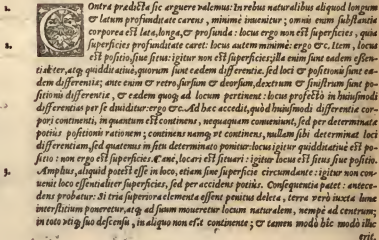 1. Contra prædicta sic arguere valemus: In rebus naturalibus aliquod longum
& latum profunditate carens, minime inuenitur; omnis enim substantia
corporea est lata, longa, & profunda: locus ergo non est superficies, quia
2. superficies profunditate caret: locus autem minimè: ergo &c. Item, locus
est positio, siue situs: igitur non est superficies; illa enim sunt eadem essen-
tialiter, atq; quidditatiuè, quorum sunt eædem differentiæ. sed loci & positionis sunt eæ-
dem differentiæ; ante enim & retro, sursum & deorsum, dextrum & sinistrum sunt po-
sitionis differentiæ, & eædem quoq; ad locum pertinent: locus profectò in huiusmodi
differentias per se diuiditur: ergo &c. Ad hæc accedit, quòd huiusmodi differentiæ cor-
pori continenti, in quantum est continens, nequaquam conueniunt, sed per determinatā
potius positionis rationem; continens namq; vt continens, nullam sibi determinat loci
differentiam, sed quatenus in situ determinato ponitur: locus igitur quidditatiuè est po-
sitio: non ergo est superficies. Canè, locari est situari: igitur locus est situs siue positio.
3. Amplius, aliquid potest esse in loco, etiam sine superficie circumdante: igitur non con-
uenit loco essentialiter superficies, sed per accidens potius. Consequentia patet: antece-
dens probatur: Si tria superiora elementa essent penitus deleta, terra verò iuxta lunæ
interstitium poneretur, atq; ad suum moueretur locum naturalem, nempè ad centrum;
in toto vtiq; suo descensu, in aliquo non esset continente; & tamen modò hic modò illic
erit.